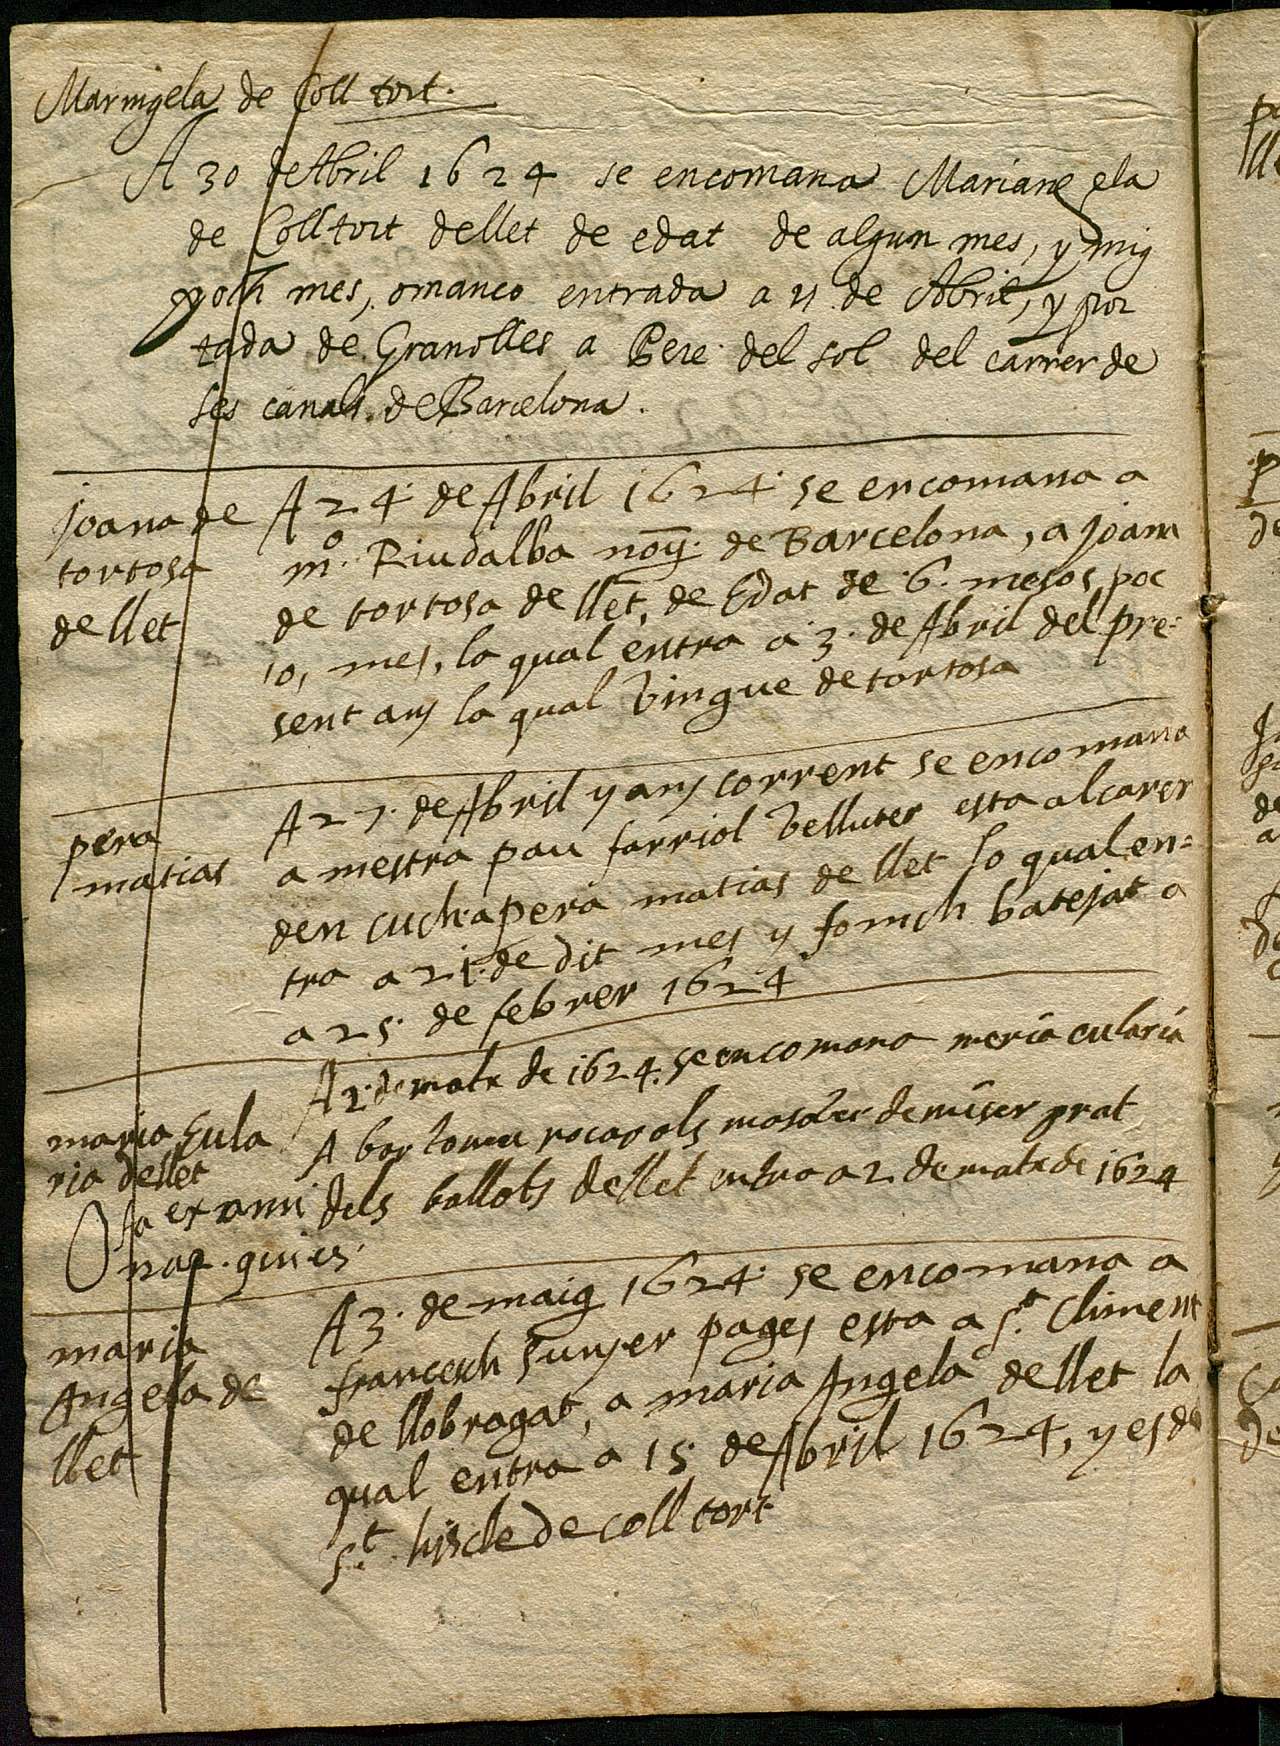 Mariāgela de Coll tort.
A 30 de Abril 1624 se encomana Mariangela
de Colltort dellet de edat de algun mes, y mig
poch mes, omanco entrada a 11 de Abril, y por
tada de Granolles a Pere del sol del carrer de
ses canals de Barcelona.
joana de
tortosa
de llet
A 24 de Abril 1624 se encomana a
mº. Riudalba noy. de Barcelona, a joana
de tortosa de llet, de Edat de 6. mesos, poc
o, mes, la qual entra a 3. de Abril del pre-
sent any la qual vingue de tortosa
pera
matias
A 27. de Abril y any corrent se encomana
a mestra pau farriol velluter esta al carer
den cuch a pera matias de llet lo qual en-
tra a 21. de dit mes y fonch batejat a
a 25. de febrer 1624
maria Eula
ria dellet
A 2 de de 1624. se encomana meria eularia
A bartomeu rocapols de miser prat
dels ballots dellet entra a 2 de de 1624
maria
Angela de
llet
A 3. de maig 1624. se encomana a
francesch sunyer pages esta a St. Climent
de llobragat, a maria Angela de llet la
qual entra a 15. de Abril 1624, y es de
St. hiscle de coll tort